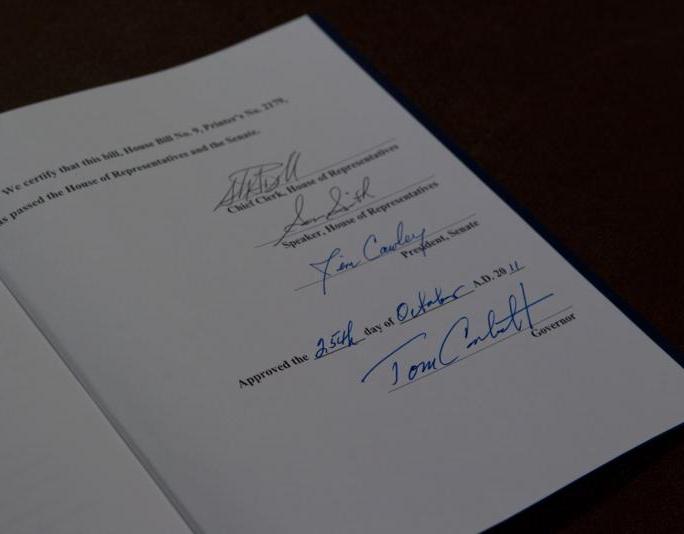 We certify that this bill, House Bill No. 9, Printer's No. 2179,
passed the House of Representatives and the Senate.
Chief Clerk, House of Representatives
Sam Smith
Speaker, House of Representatives
Jim Cawley
President, Senate
Approved the 25th day of October A.D. 2011
Tom Corbett
Governor